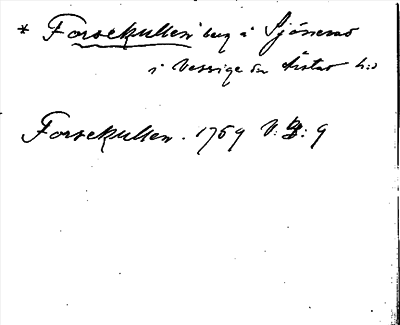 * Forsekullen i beg i Sjönevad
i Vessige sn Årstad h:d
Forsekullen. 1769 V: B: 9